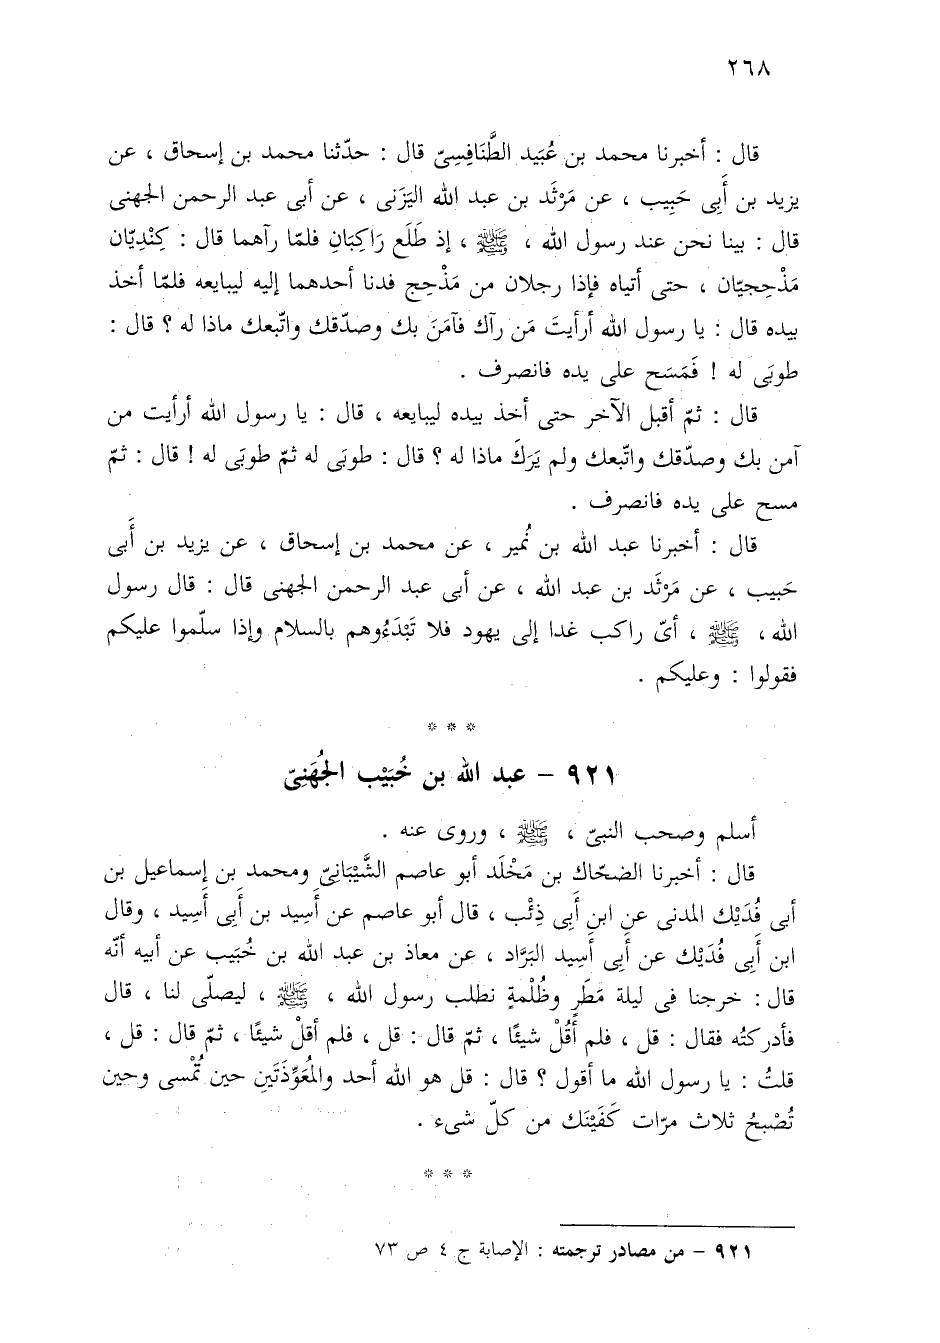 ٢٦٨
قال : أخبرنا محمد بن عُبَيد الطَّنَافِسِىّ قال : حدّثنا محمد بن إسحاق ، عن
يزيد بن أَبِى حَبِيب ، عن مَرْثَد بن عبد الله اليَزَنى ، عن أبى عبد الرحمن الجهنى
قال : بينا نحن عند رسول الله ، ﷺ ، إذ طَلَع رَاكِبَانِ فلمّا رآهما قال : كِنْدِيّان
مَذْحِجيّان ، حتى أتياه فإذا رجلان من مَذْحِج فدنا أحدهما إليه ليبايعه فلمّا أخذ
بيده قال : يا رسول الله أرأيتَ مَن رآك فآمَنَ بك وصدّقك واتّبعك ماذا له ؟ قال :
طوبَى له ! فَمَسَح على يده فانصرف .
قال : ثمّ أقبل الآخر حتى أخذ بيده ليبايعه ، قال : يا رسول الله أرأيت من
آمن بك وصدّقك واتّبعك ولم يَرَكَ ماذا له ؟ قال : طوبَى له ثمّ طوبَى له ! قال : ثمّ
مسح على يده فانصرف .
قال : أخبرنا عبد الله بن نُمير ، عن محمد بن إسحاق ، عن يزيد بن أَبى
حَبيب ، عن مَرْثَد بن عبد الله ، عن أبى عبد الرحمن الجهنى قال : قال رسول
الله ، ﷺ ، أىّ راكب غدا إلى يهود فلا تَبْدَءُوهم بالسلام وإذا سلّموا عليكم
فقولوا : وعليكم .
* * *
٩٢١ – عبد الله بن خُبَيْب الجُهَنِىّ
أسلم وصحب النبىّ ، ﷺ ، وروى عنه .
قال : أخبرنا الضحّاك بن مَخْلَد أبو عاصم الشَّيْبَانِىّ ومحمد بن إسماعيل بن
أبى فُدَيْك المدنى عن ابن أَبِى ذِئْب ، قال أبو عاصم عن أَسِيد بن أَبِى أَسِيد ، وقال
ابن أَبِى فُدَيْك عن أَبِى أَسِيد البَرَّاد ، عن معاذ بن عبد الله بن خُبَيب عن أبيه أنّه
قال : خرجنا فى ليلة مَطَرٍ وظُلْمةٍ نطلب رسول الله ، ﷺ ، ليصلّى لنا ، قال
فأدركتُه فقال : قل ، فلم أَقُلْ شيئًا ، ثمّ قال : قل ، فلم أقلْ شيئًا ، ثمّ قال : قل ،
قلتُ : يا رسول الله ما أقول ؟ قال : قل هو الله أحد والمُعَوِّذَتَينِ حين تُمْسى وحين
تُصْبحُ ثلاث مرّات كَفَيْنَك من كلّ شىء .
* * *
٩٢١ – من مصادر ترجمته : الإصابة ج ٤ ص ٧٣